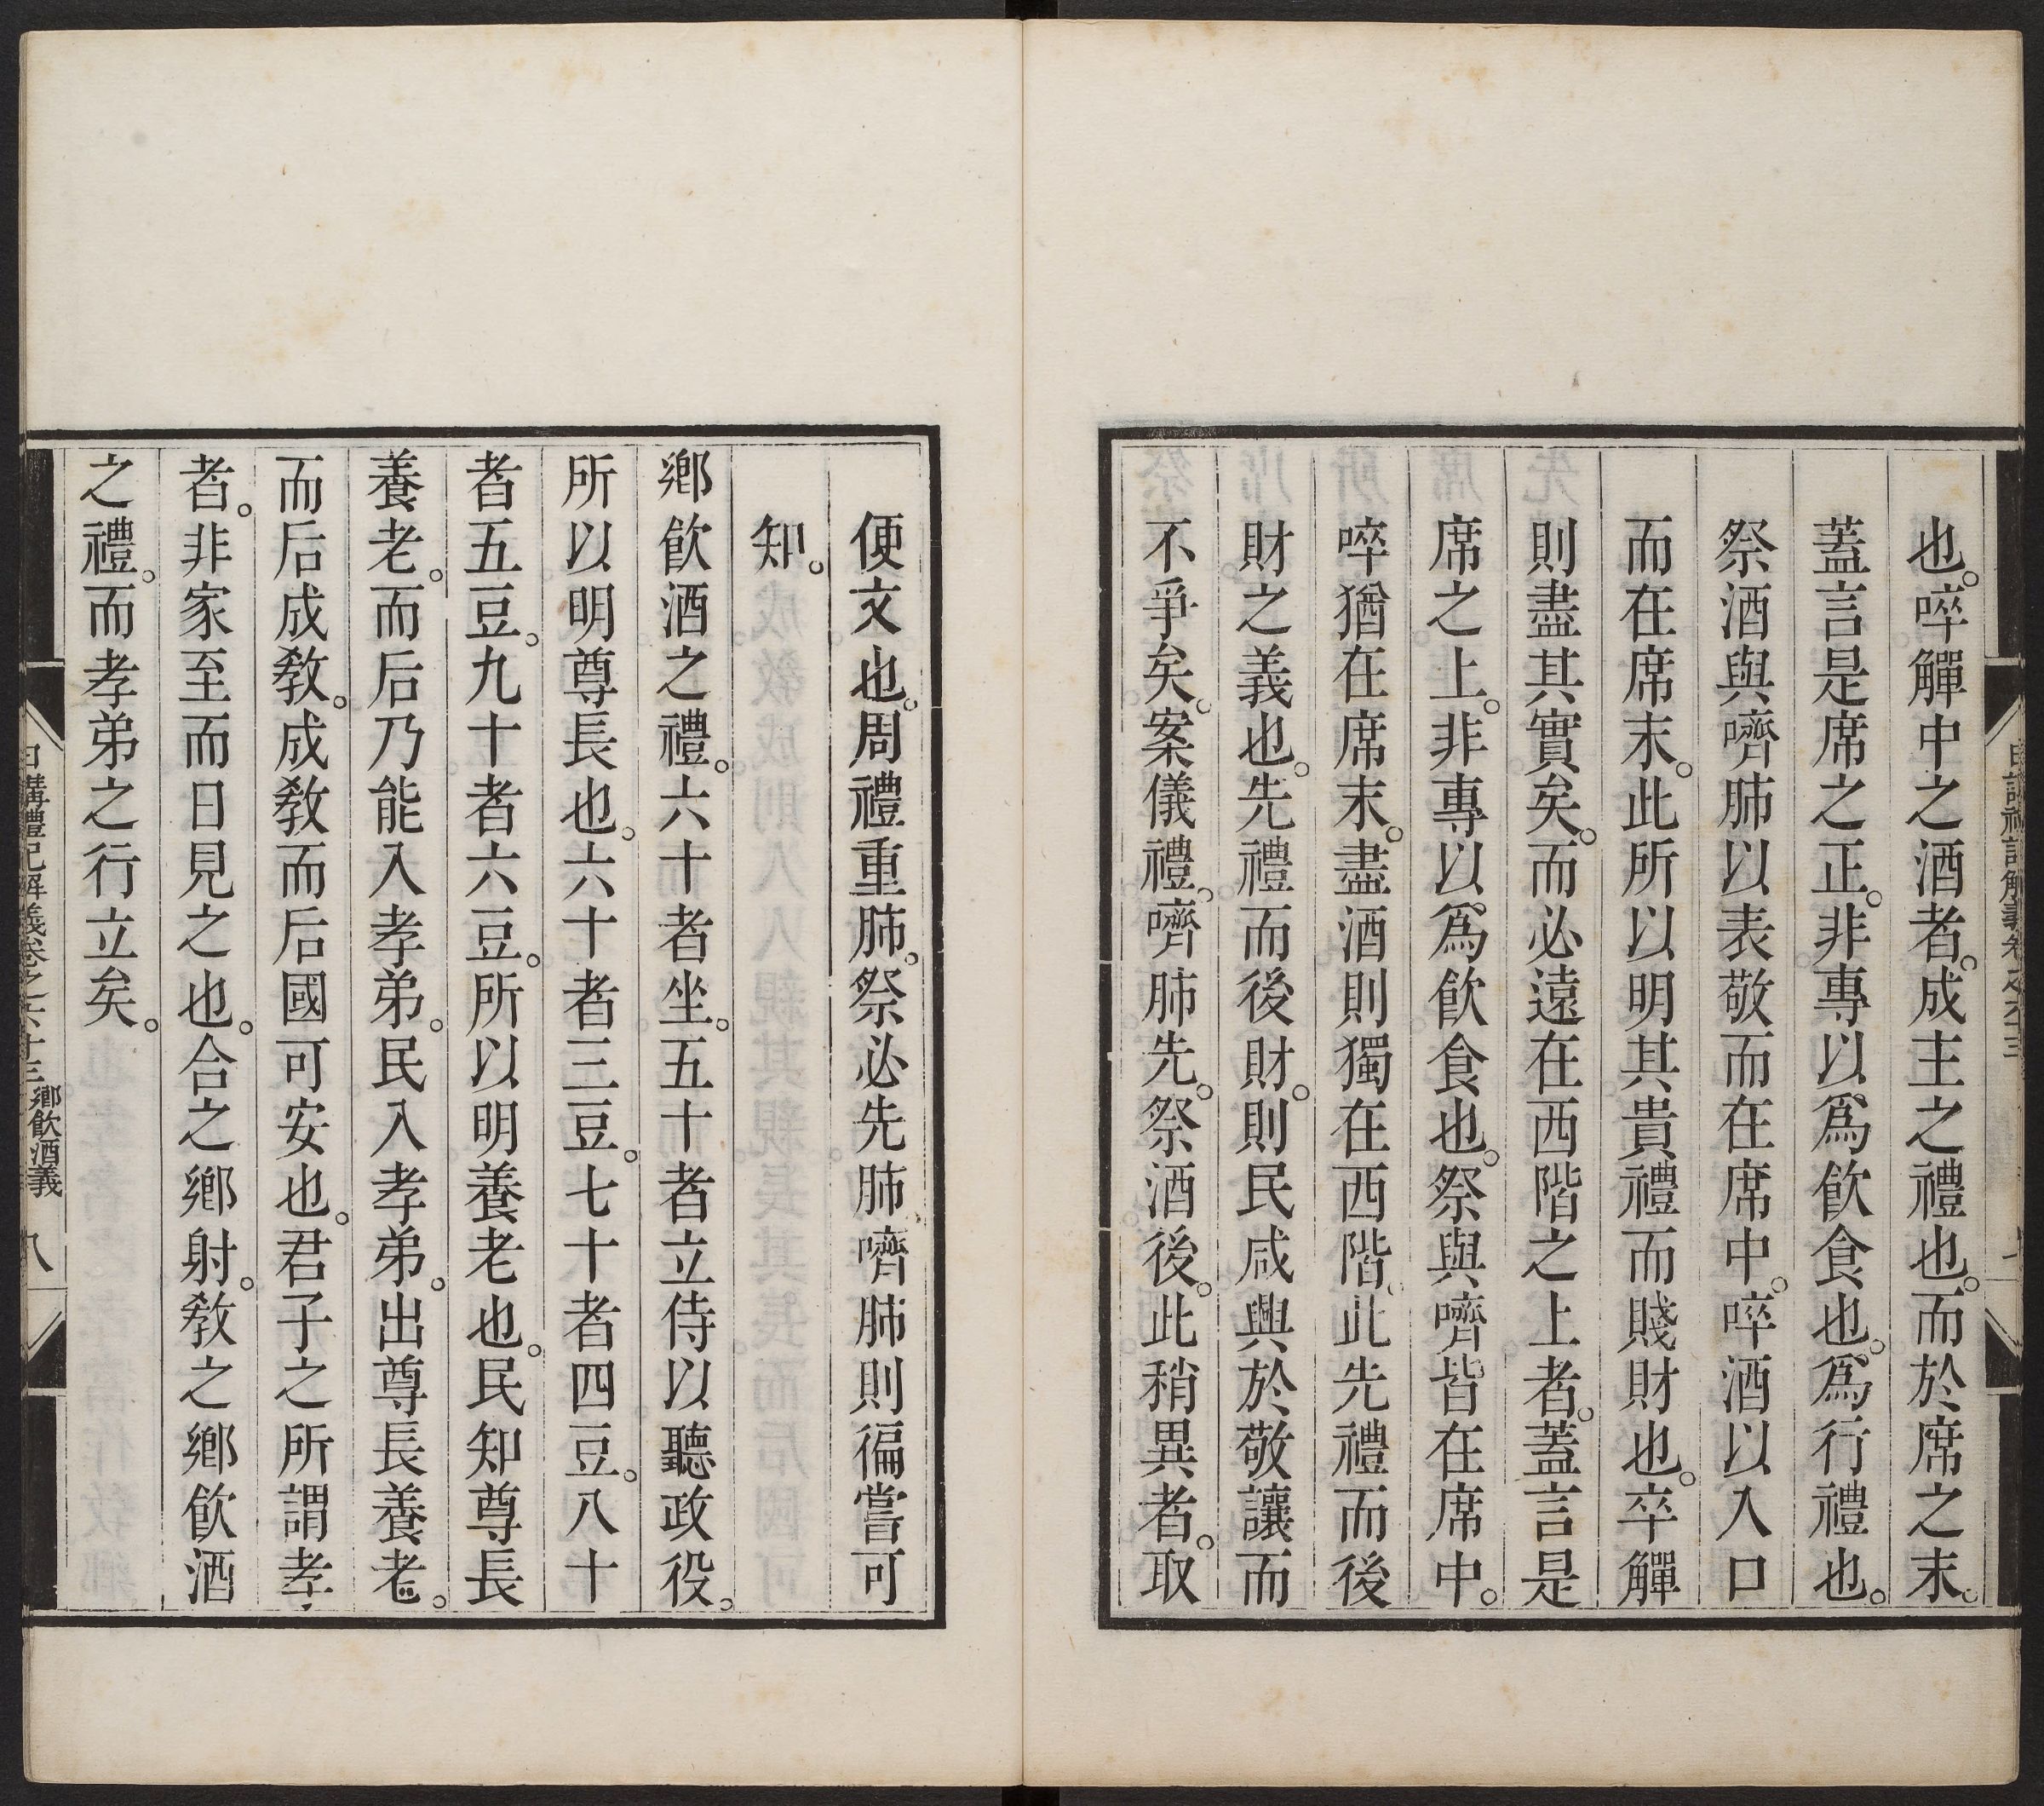 也。啐觶中之酒者。成主之禮也。而於席之末。
蓋言是席之正。非專以爲飮食也。爲行禮也。
祭酒與嚌肺以表敬而在席中。啐酒以入口
而在席末。此所以明其貴禮而賤財也。卒觶
則盡其實矣。而必遠在西階之上者。蓋言是
席之上。非專以爲飮食也。祭與嚌皆在席中。
啐猶在席末。盡酒則獨在西階。此先禮而後
財之義也。先禮而後財。則民咸興於敬讓而
不爭矣。案儀禮。嚌肺先。祭酒後。此稍異者。取
便文也。周禮重肺。祭必先肺。嚌肺則徧嘗可
知。
鄉飮酒之禮。六十者坐。五十者立侍以聽政役。
所以明尊長也。六十者三豆。七十者四豆。八十
者五豆。九十者六豆。所以明養老也。民知尊長
養老。而后乃能入孝弟。民入孝弟。出尊長養老。
而后成敎。成敎而后國可安也。君子之所謂孝
者。非家至而日見之也。合之鄉射。敎之鄉飮酒
之禮。而孝弟之行立矣。
日講禮記解義卷之六十三 鄉飮酒義 八